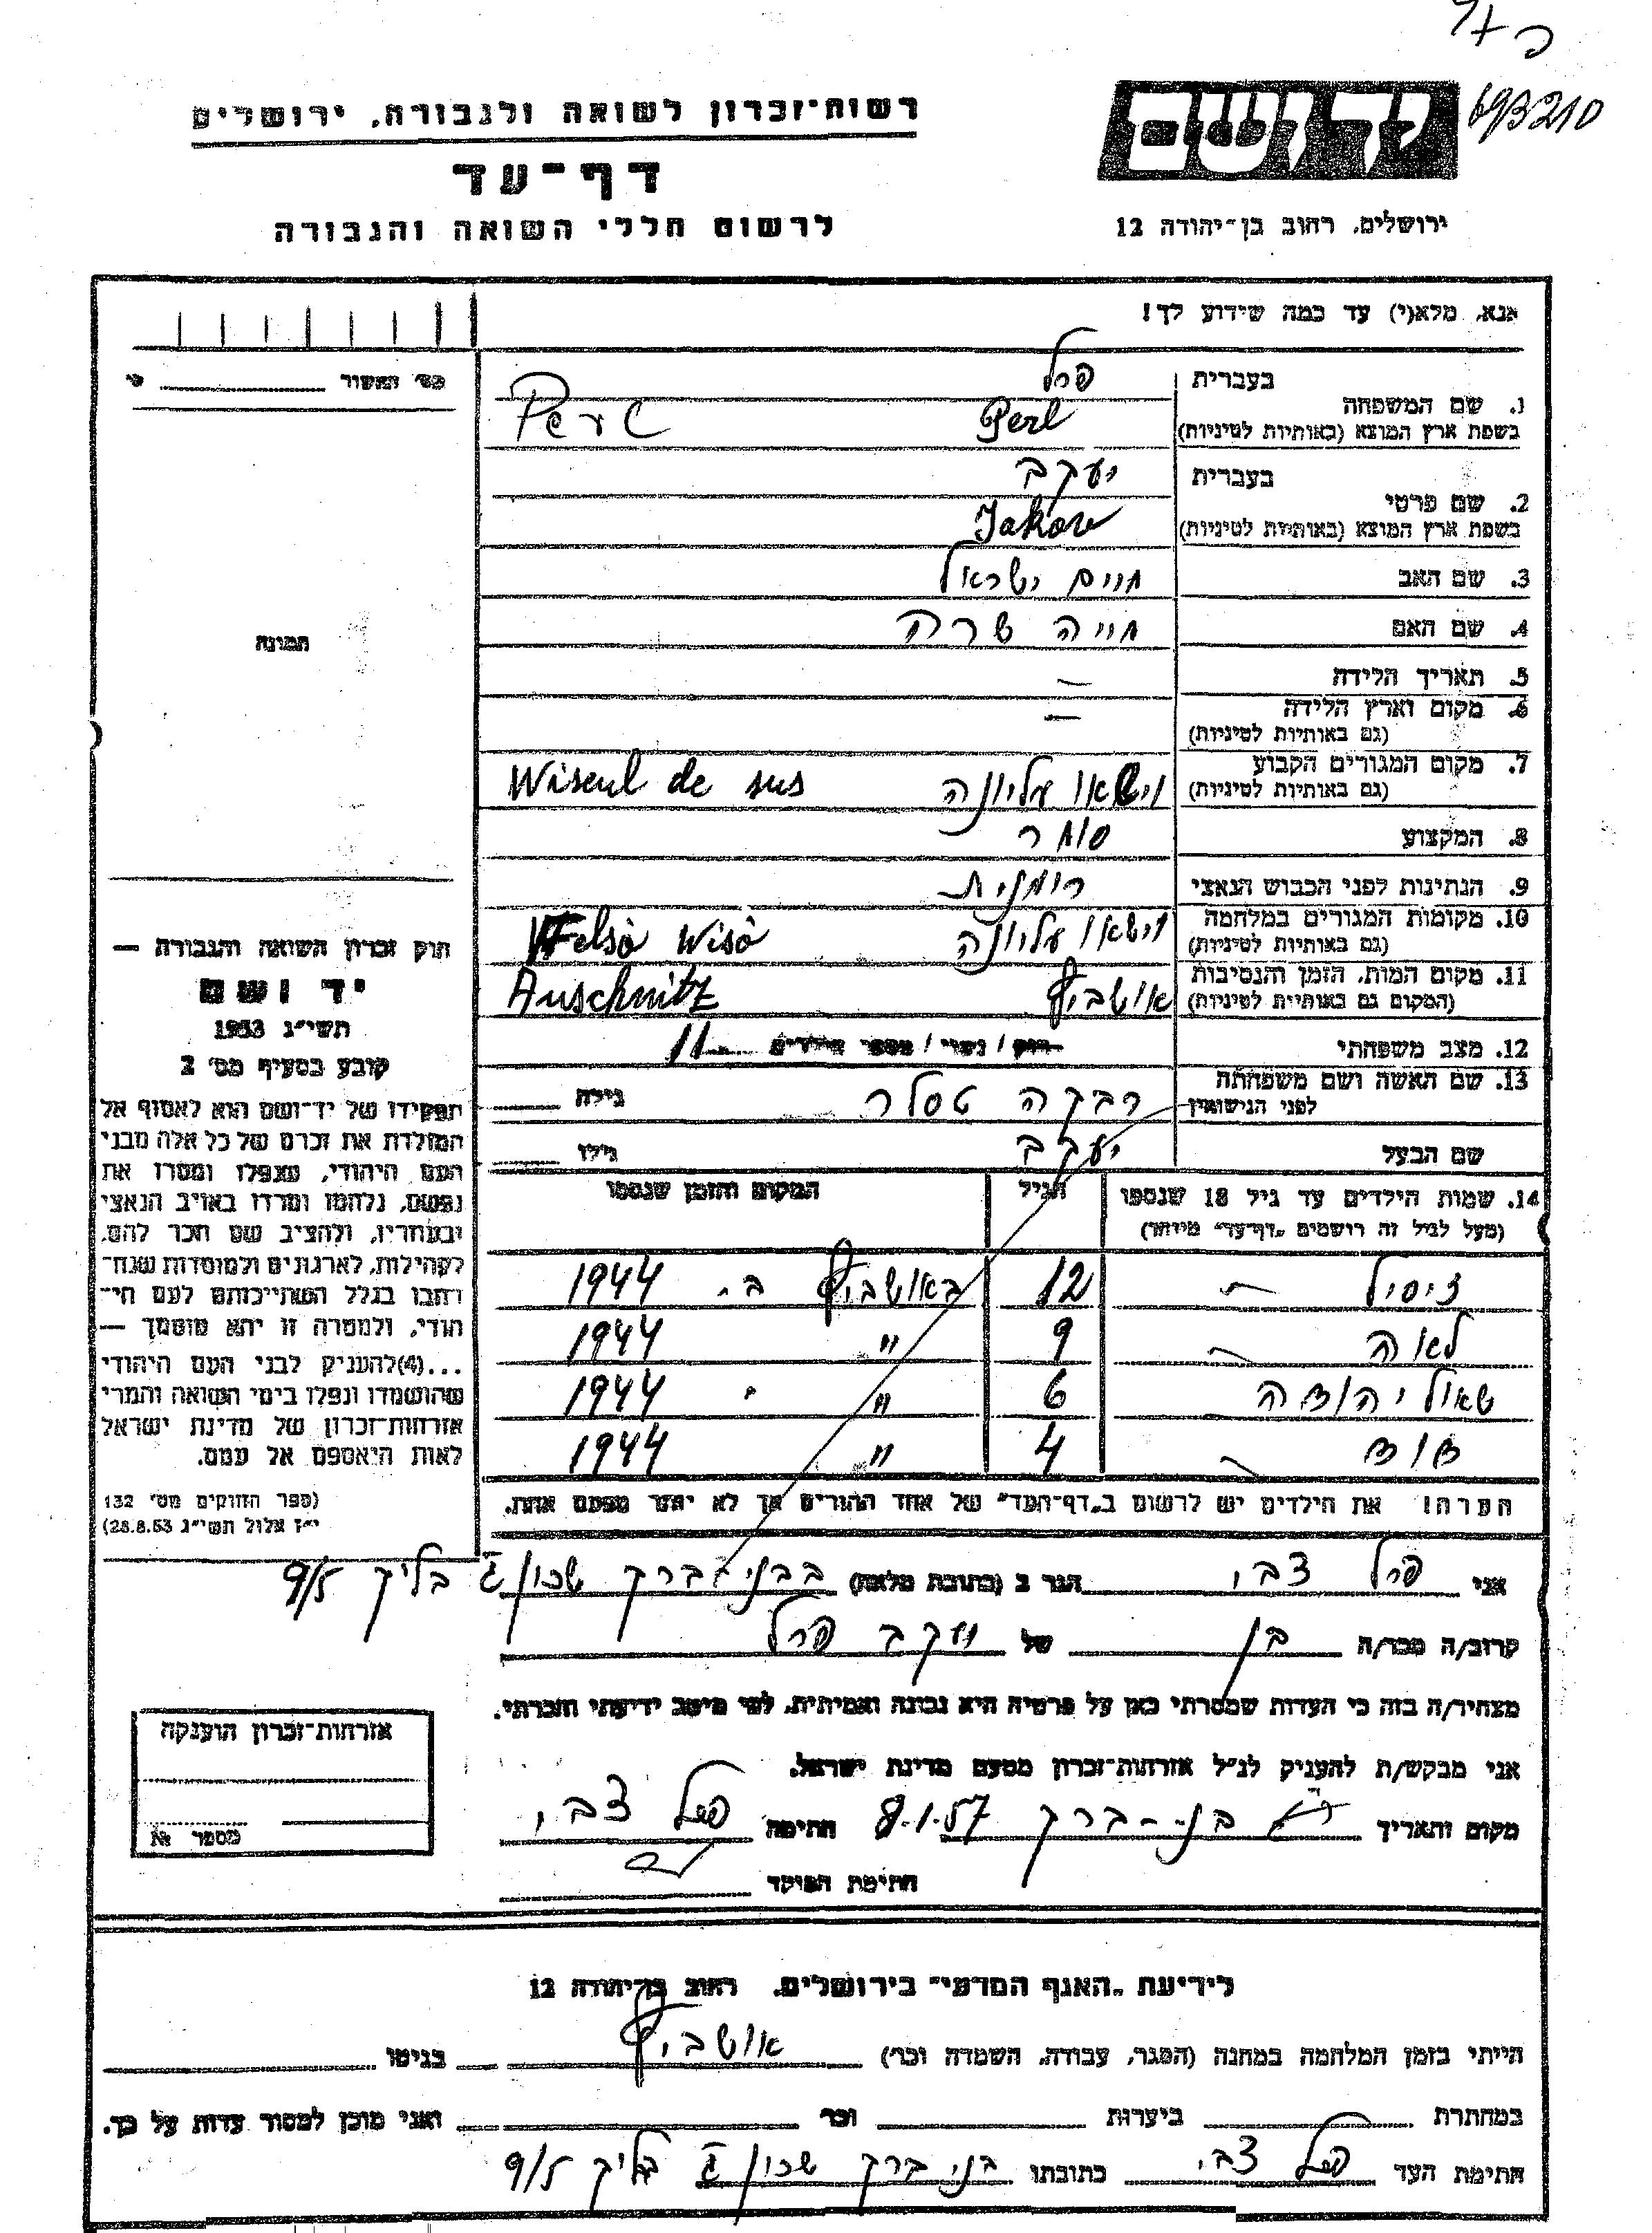 693210
רשות־זכרון לשואה ולגבורה, ירושלים
דף־עד
לרשום חללי השואה והגבורה
ידושם
ירושלים, רחוב בן־יהודה 12
אנא, מלא(י) עד כמה שידוע לך!
בעברית פרל
1. שם המשפחה
בשפת ארץ המוצא (באותיות לטיניות) Perl Perl
בעברית יעקב
2. שם פרטי
בשפת ארץ המוצא (באותיות לטיניות) Jakov
3. שם האב חיים ישראל
4. שם האם חייה שרה
5. תאריך הלידה —
6. מקום וארץ הלידה —
(גם באותיות לטיניות)
7. מקום המגורים הקבוע וישאו עליונה Wiseul de sus
(גם באותיות לטיניות)
8. המקצוע סוחר
9. הנתינות לפני הכבוש הנאצי רומנית
10. מקומות המגורים במלחמה וישאו עליונה Felsö Wisö
(גם באותיות לטיניות)
11. מקום המות, הזמן והנסיבות אושביץ Auschwitz
(המקום גם באותיות לטיניות)
12. מצב משפחתי רווק / נשוי / מספר הילדים 11
13. שם האשה ושם משפחתה רבקה טסלר גילה
לפני הנישואין
שם הבעל יעקב גילו
14. שמות הילדים עד גיל 18 שנספו הגיל המקום והזמן שנספו
(מעל לגיל זה רושמים „דף־עד" מיוחד)
ציסיל 12 באושביץ ב. 1944
לאה 9 " 1944
שאול יהודה 6 " 1944
דוד 4 " 1944
הערה! את הילדים יש לרשום ב„דף־העד" של אחד ההורים אך לא יותר מפעם אחת.
מס' האשור
תמונה
חוק זכרון השואה והגבורה —
יד ושם
תשי״ג 1953
קובע בסעיף מס' 2
תפקידו של יד־ושם הוא לאסוף אל
המולדת את זכרם של כל אלה מבני
העם היהודי, שנפלו ומסרו את
נפשם, נלחמו ומרדו באויב הנאצי
ובעוזריו, ולהציב שם וזכר להם,
לקהילות, לארגונים ולמוסדות שנח־
רבו בגלל השתייכותם לעם הי־
הודי, ולמטרה זו יהא מוסמך —
...(4)להעניק לבני העם היהודי
שהושמדו ונפלו בימי השואה והמרי
אזרחות־זכרון של מדינת ישראל
לאות היאספם אל עמם.
(ספר החוקים מס' 132
י״ז אלול תשי״ג 28.8.53)
אני פרל צבי הגר ב (כתובת מלאה) בבני ברק שכון ג בליק 9/5
קרוב/ה מכר/ה בן של יעקב פרל
מצהיר/ה בזה כי העדות שמסרתי כאן על פרטיה היא נכונה ואמיתית, לפי מיטב ידיעתי והכרתי.
אני מבקש/ת להעניק לנ״ל אזרחות־זכרון מטעם מדינת ישראל.
מקום ותאריך בני-ברק 8.1.57 חתימה פרל צבי
חתימת הפוקד
אזרחות־זכרון הוענקה
מספר №
לידיעת „האגף המדעי" בירושלים, רחוב בן יהודה 12
הייתי בזמן המלחמה במחנה (הסגר, עבודה, השמדה וכו') אושביץ בגיטו
במחתרת ביערות וכו' ואני מוכן למסור עדות על כך.
חתימת העד פרל צבי כתובתו בני ברק שכון ג בליק 9/5